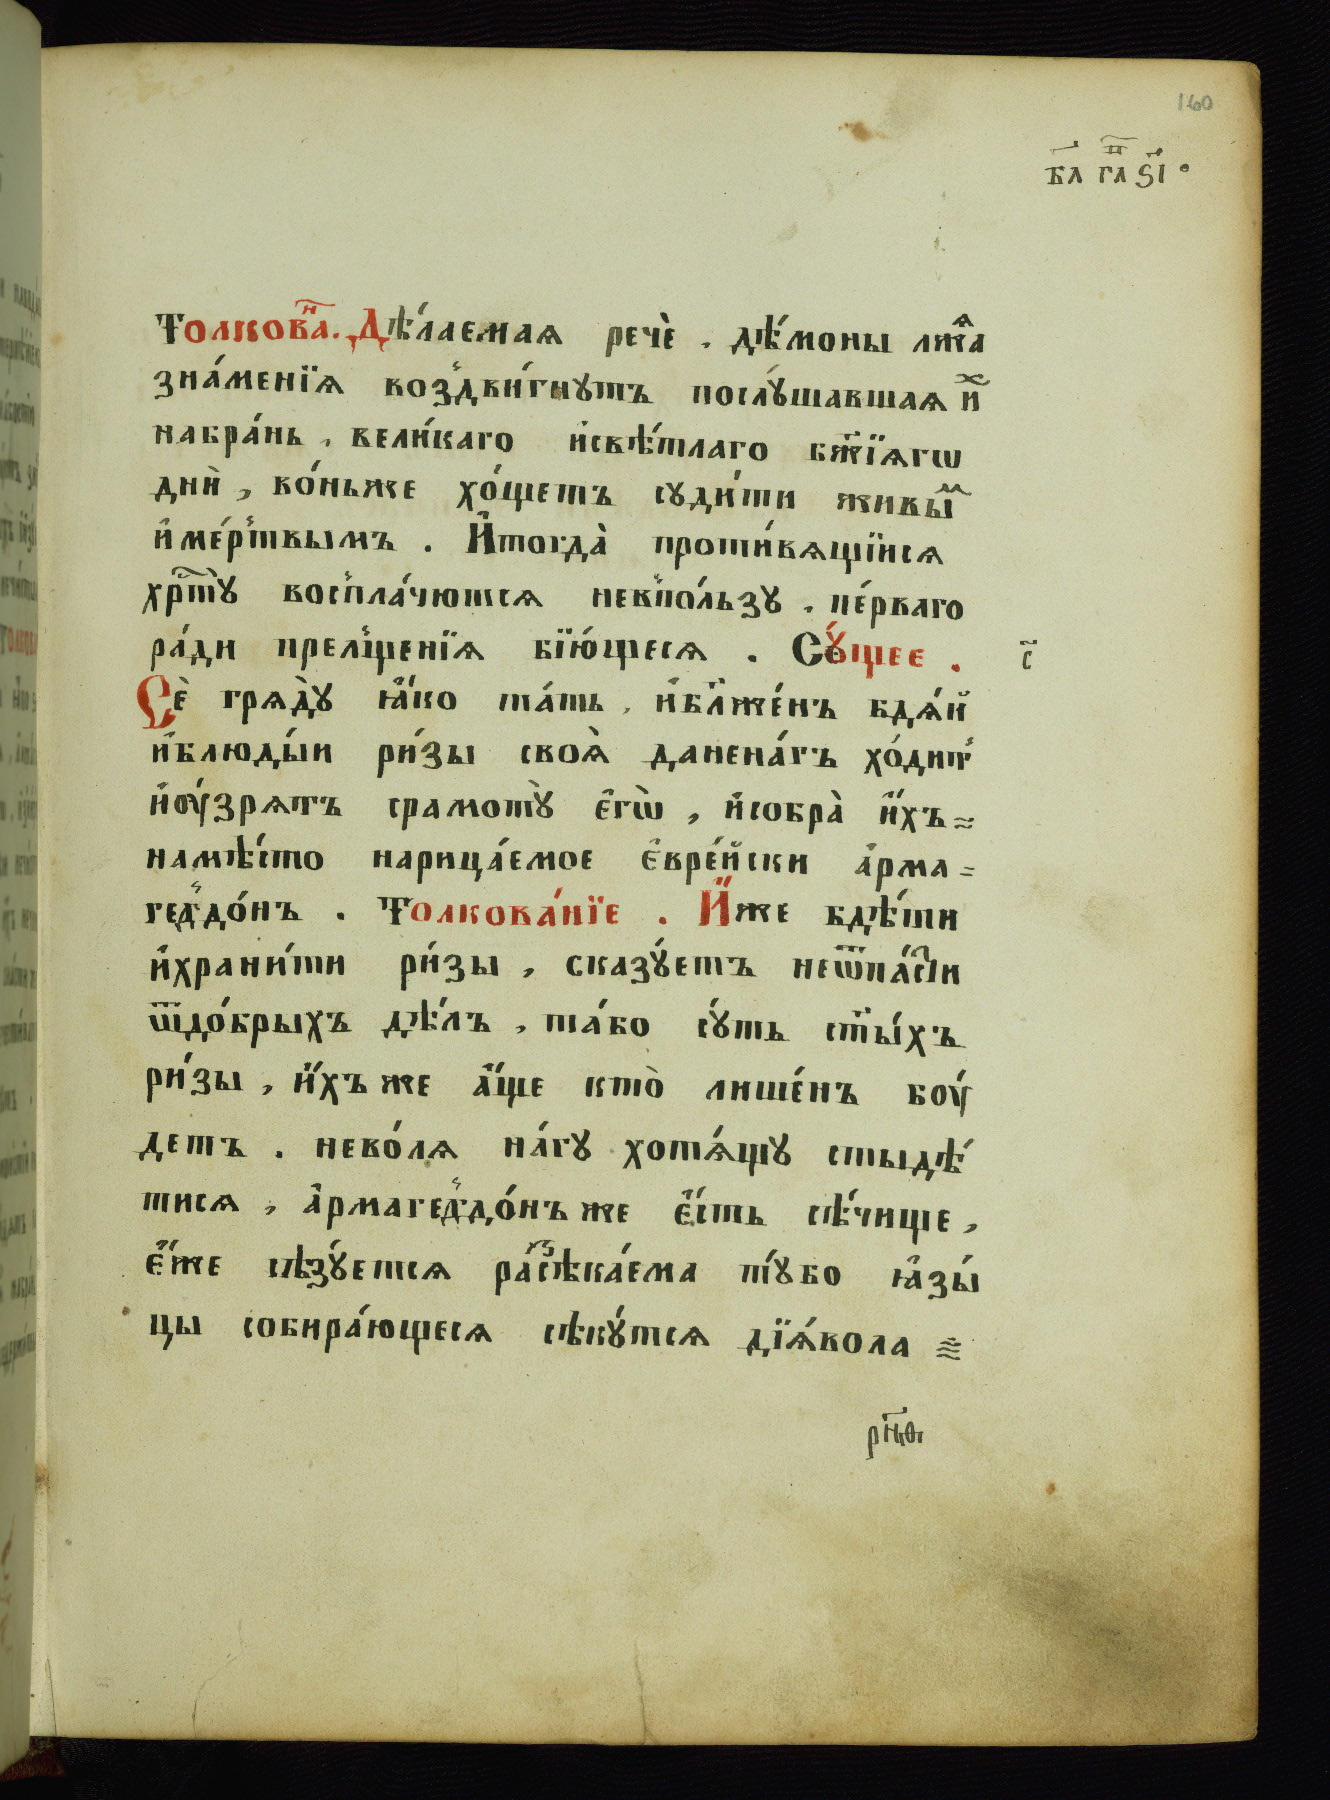 160
гл҃а гл҃а ѕ҃і
Толкова́н. Дѣ́лаемая речѐ . дѣ́моны лжа̑ѧ
зна́менїѧ воздви́гнутъ послу́шавшаѧ и҆х
набра́нь , вели́каго и҆свѣ́тлаго бж҃їѧгѡ
днѝ , во́ньже хо́щетъ суди́ти живы̑м
и҆ме́ртвымъ . И҆тогда̀ проти́вѧщїисѧ
хрⷭ҇ту̀ воспла́чютсѧ невпо́льзу . пе́рваго
ра́ди прелще́нїѧ бїю́щесѧ . Су́щее . с҃
Сѐ грѧду̀ ꙗ҆́ко та́ть , и҆бл҃же́нъ бдѧ́й
и҆блюды́и ри́зы своѧ̀ дanена́гъ хо́дит
и҆оу҆́зрѧтъ срамоту̀ є҆гѡ̀ , и҆собра̀ и҆́хъ
намѣ́сто нарица́емое є҆вре́йски а҆рма
геддо́нъ . Толкова́нїе . И҆́же бдѣ́ти
и҆храни́ти ри́зы , сказу́етъ неѿпа́сти
ѿдо́брыхъ дѣ́лъ , та́бо су́ть ст҃ы́хъ
ри́зы , и҆́хъже а҆́ще кто̀ лише́нъ боу́
детъ . нево́лѧ на́гу хотѧ́щу стыдѣ́
тисѧ , а҆рмагеддо́нъже є҆́сть сѣ́чище ,
є҆́же сѣзу́етсѧ разсѣка́ема ту́бо ꙗ҆зы́
цы собира́ющесѧ сѣку́тсѧ дїѧ́вола
рн҃ѳ